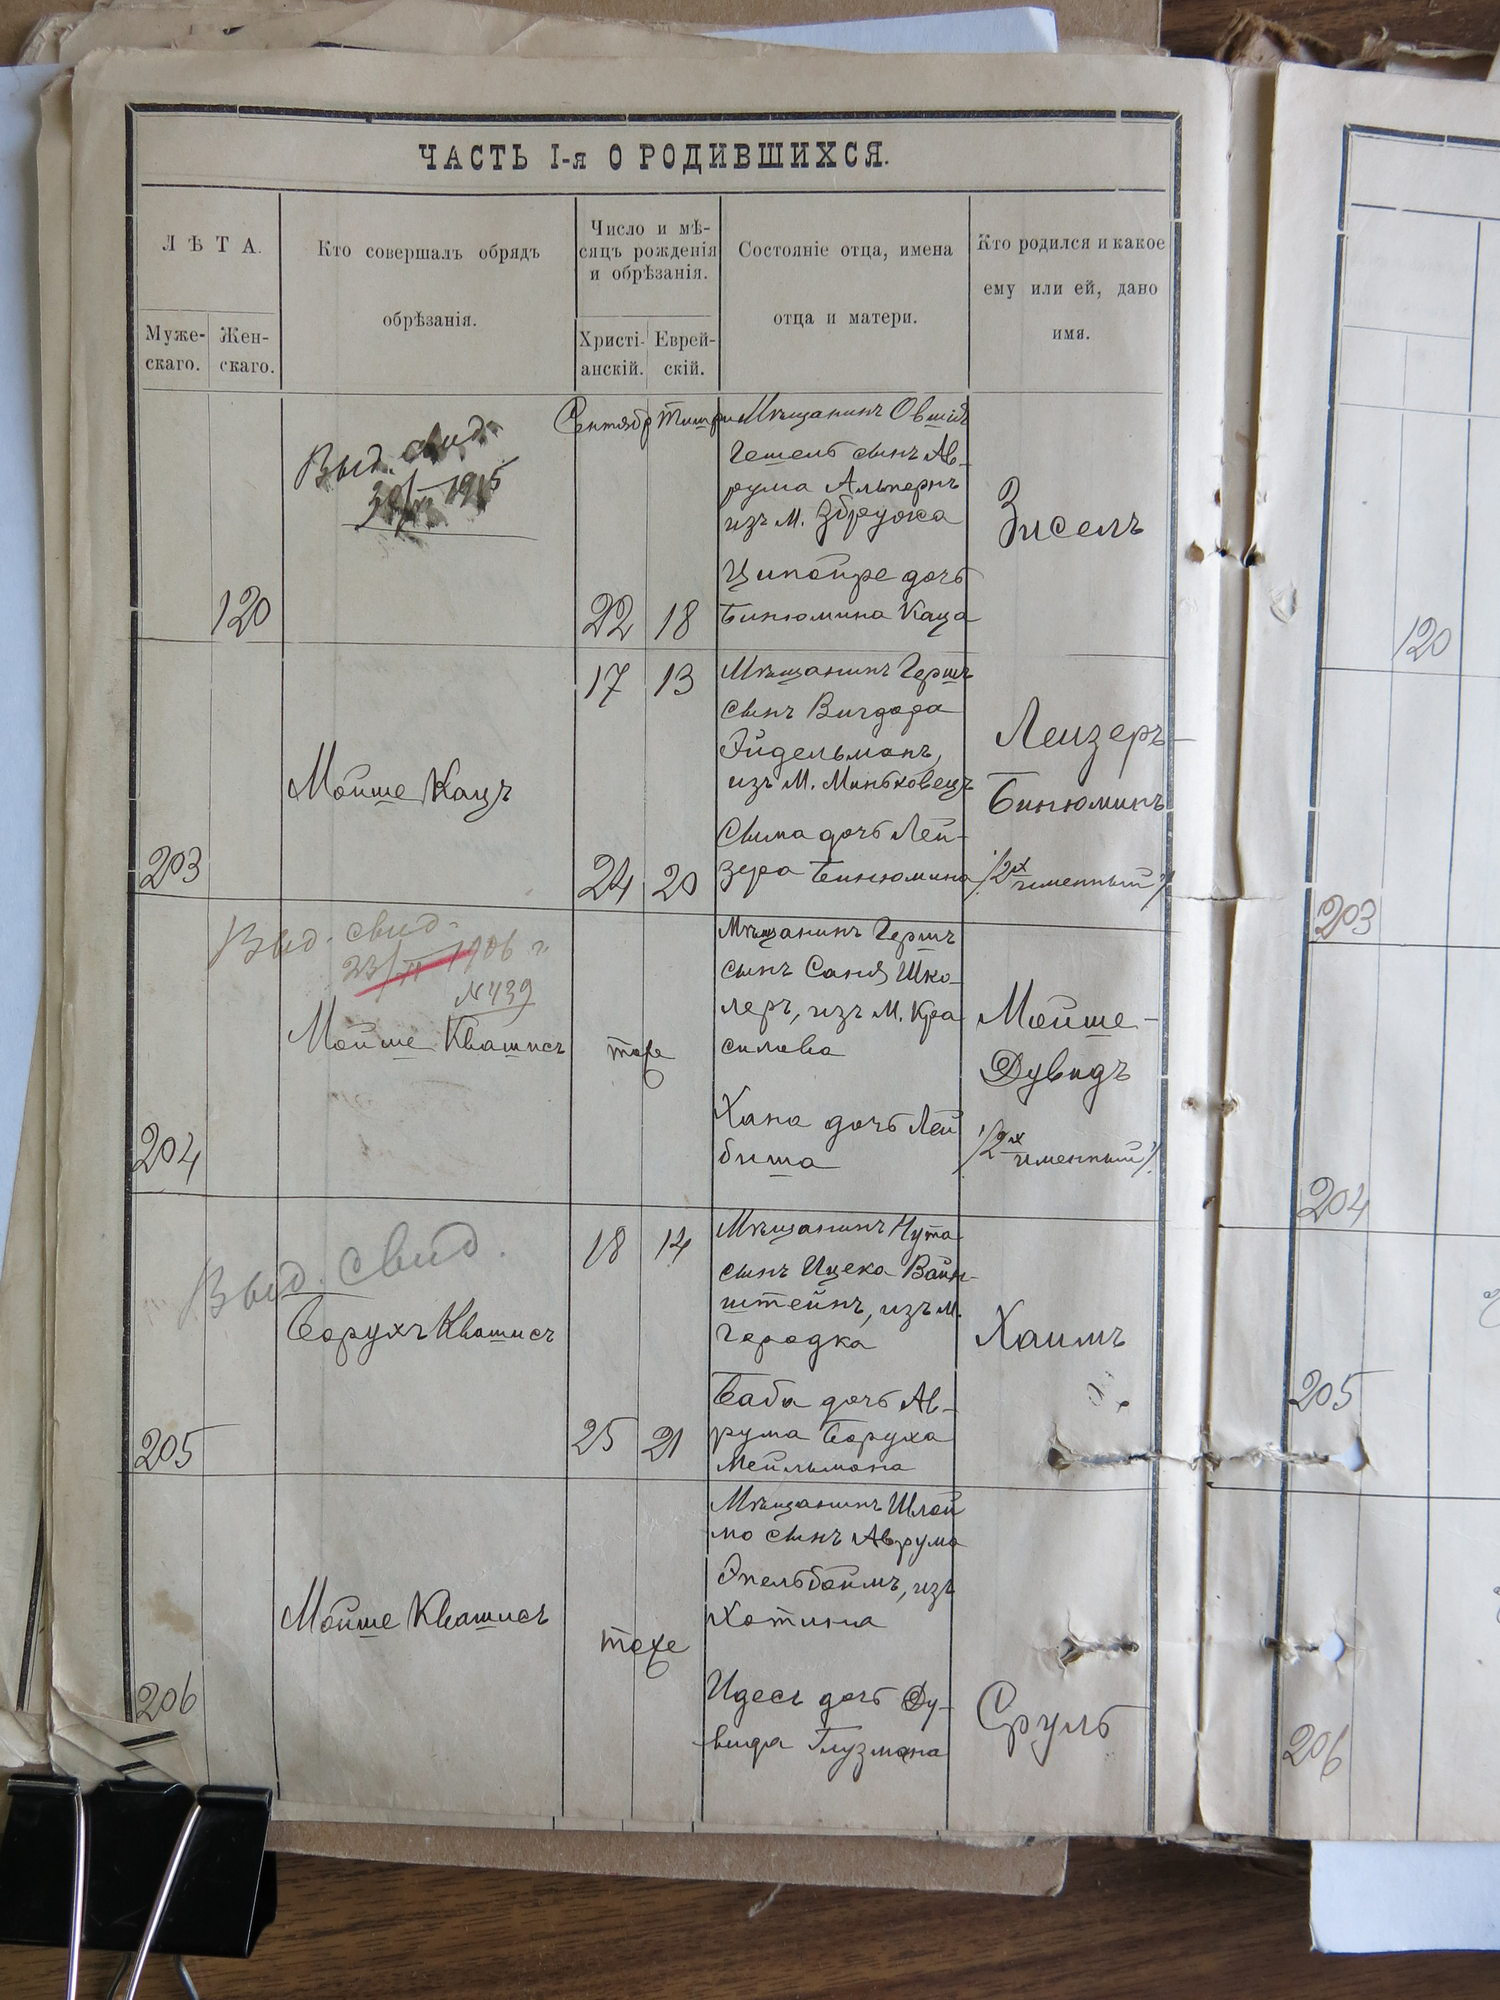 ЧАСТЬ I-я О РОДИВШИХСЯ.
ЛѢТА.
Муже-
скаго.
Жен-
скаго.
Кто совершалъ обрядъ
обрѣзанія.
Число и мѣ-
сяцъ рожденія
и обрѣзанія.
Христі-
анскій.
Еврей-
скій.
Состояніе отца, имена
отца и матери.
Кто родился и какое
ему или ей, дано
имя.
120
Выд. свид.
1915
Сентябр Тишри
22 18
Мѣщанинъ Овшій
Гешель сынъ Ав-
рума Альперъ
изъ м. Збружа
Ципойре дочь
Бинюмина Каца
Зисель
203
Мойше Кацъ
17 13
24 20
Мѣщанинъ Гершъ
сынъ Вигдора
Эйдельманъ,
изъ м. Миньковецъ
Сима дочь Лей-
зера Бинюмина
Лейзеръ-
Бинюминъ
/2ух
именный/
204
Выд. свид.
23/II 1906 г.
№ 439
Мойше Квашисъ
тоже
Мѣщанинъ Гершъ
сынъ Саня Шко-
леръ, изъ м. Кра
силова
Хана дочь Лей
биша
Мойше-
Дувидъ
/2ух
именный/.
205
Выд. свид.
Борухъ Квашисъ
18 14
25 21
Мѣщанинъ Нута
сынъ Ицека Вайн-
штейнъ, изъ м.
Городка
Баба дочь Ав-
рума Боруха
Мейльмана
Хаимъ
206
Мойше Квашисъ
тоже
Мѣщанинъ Шлой
мо сынъ Аврума
Эпельбоймъ, изъ
Хотина
Идесъ дочь Ду-
вида Глузмана
Сруль
120
203
204
205
206